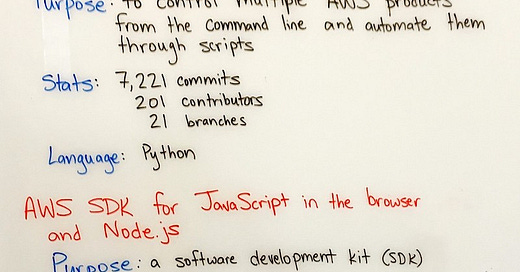 Purpose: to control multiple AWS products
from the command line and automate them
through scripts
Stats: 7,221 commits
201 contributors
21 branches
Language: Python
AWS SDK for JavaScript in the browser
and Node.js
Purpose: a software development kit (SDK)